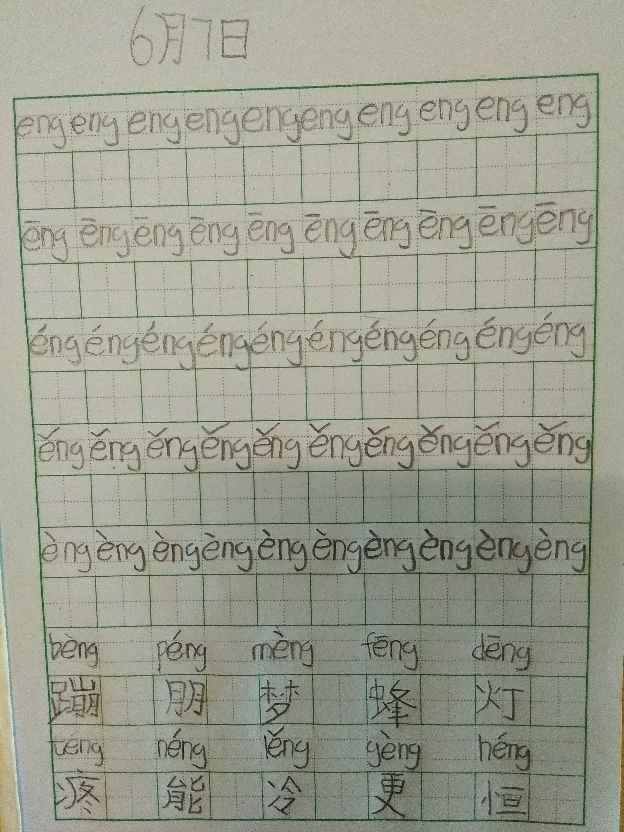 6月7日
eng eng eng eng eng eng eng eng eng eng
ēng ēng ēng ēng ēng ēng ēng ēng ēng ēng
éng éng éng éng éng éng éng éng éng éng
ěng ěng ěng ěng ěng ěng ěng ěng ěng ěng
èng èng èng èng èng èng èng èng èng èng
bèng péng mèng fēng dēng
蹦 朋 梦 蜂 灯
téng néng lěng gèng héng
疼 能 冷 更 恒